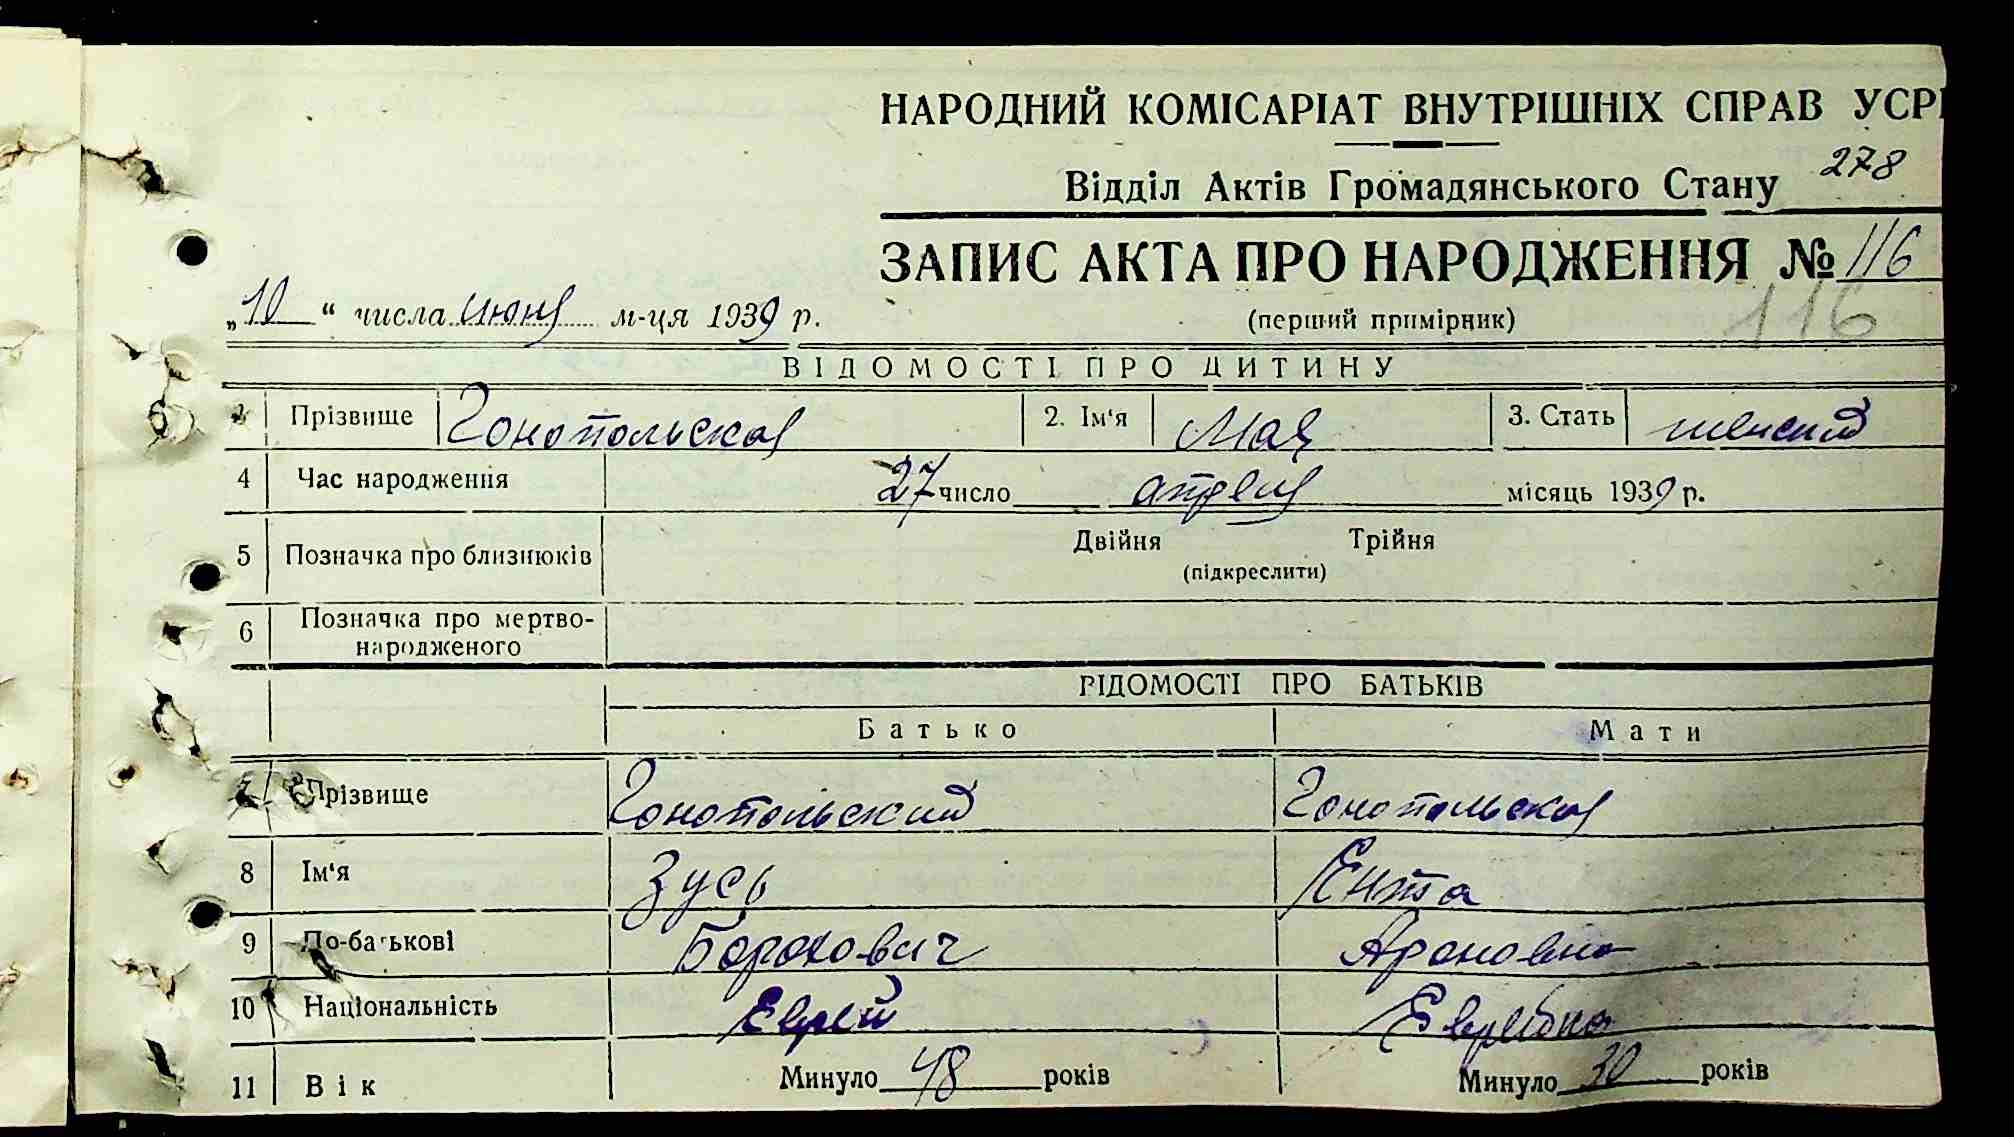 НАРОДНИЙ КОМІСАРІАТ ВНУТРІШНІХ СПРАВ УСРР
Відділ Актів Громадянського Стану 278
ЗАПИС АКТА ПРО НАРОДЖЕННЯ № 116
„10“ числа июня м-ця 1939 р. (перший примірник) 116
ВІДОМОСТІ ПРО ДИТИНУ
Прізвище Гонопольская 2. Ім'я Мая 3. Стать женский
4 Час народження 27 число апреля місяць 1939 р.
5 Позначка про близнюків Двійня Трійня
(підкреслити)
6 Позначка про мертво-
народженого
ВІДОМОСТІ ПРО БАТЬКІВ
Батько Мати
7 Прізвище Гонопольский Гонопольская
8 Ім'я Зусь Ента
9 По-батькові Борохович Ароновна
10 Національність Еврей Еврейка
11 Вік Минуло 48 років Минуло 30 років